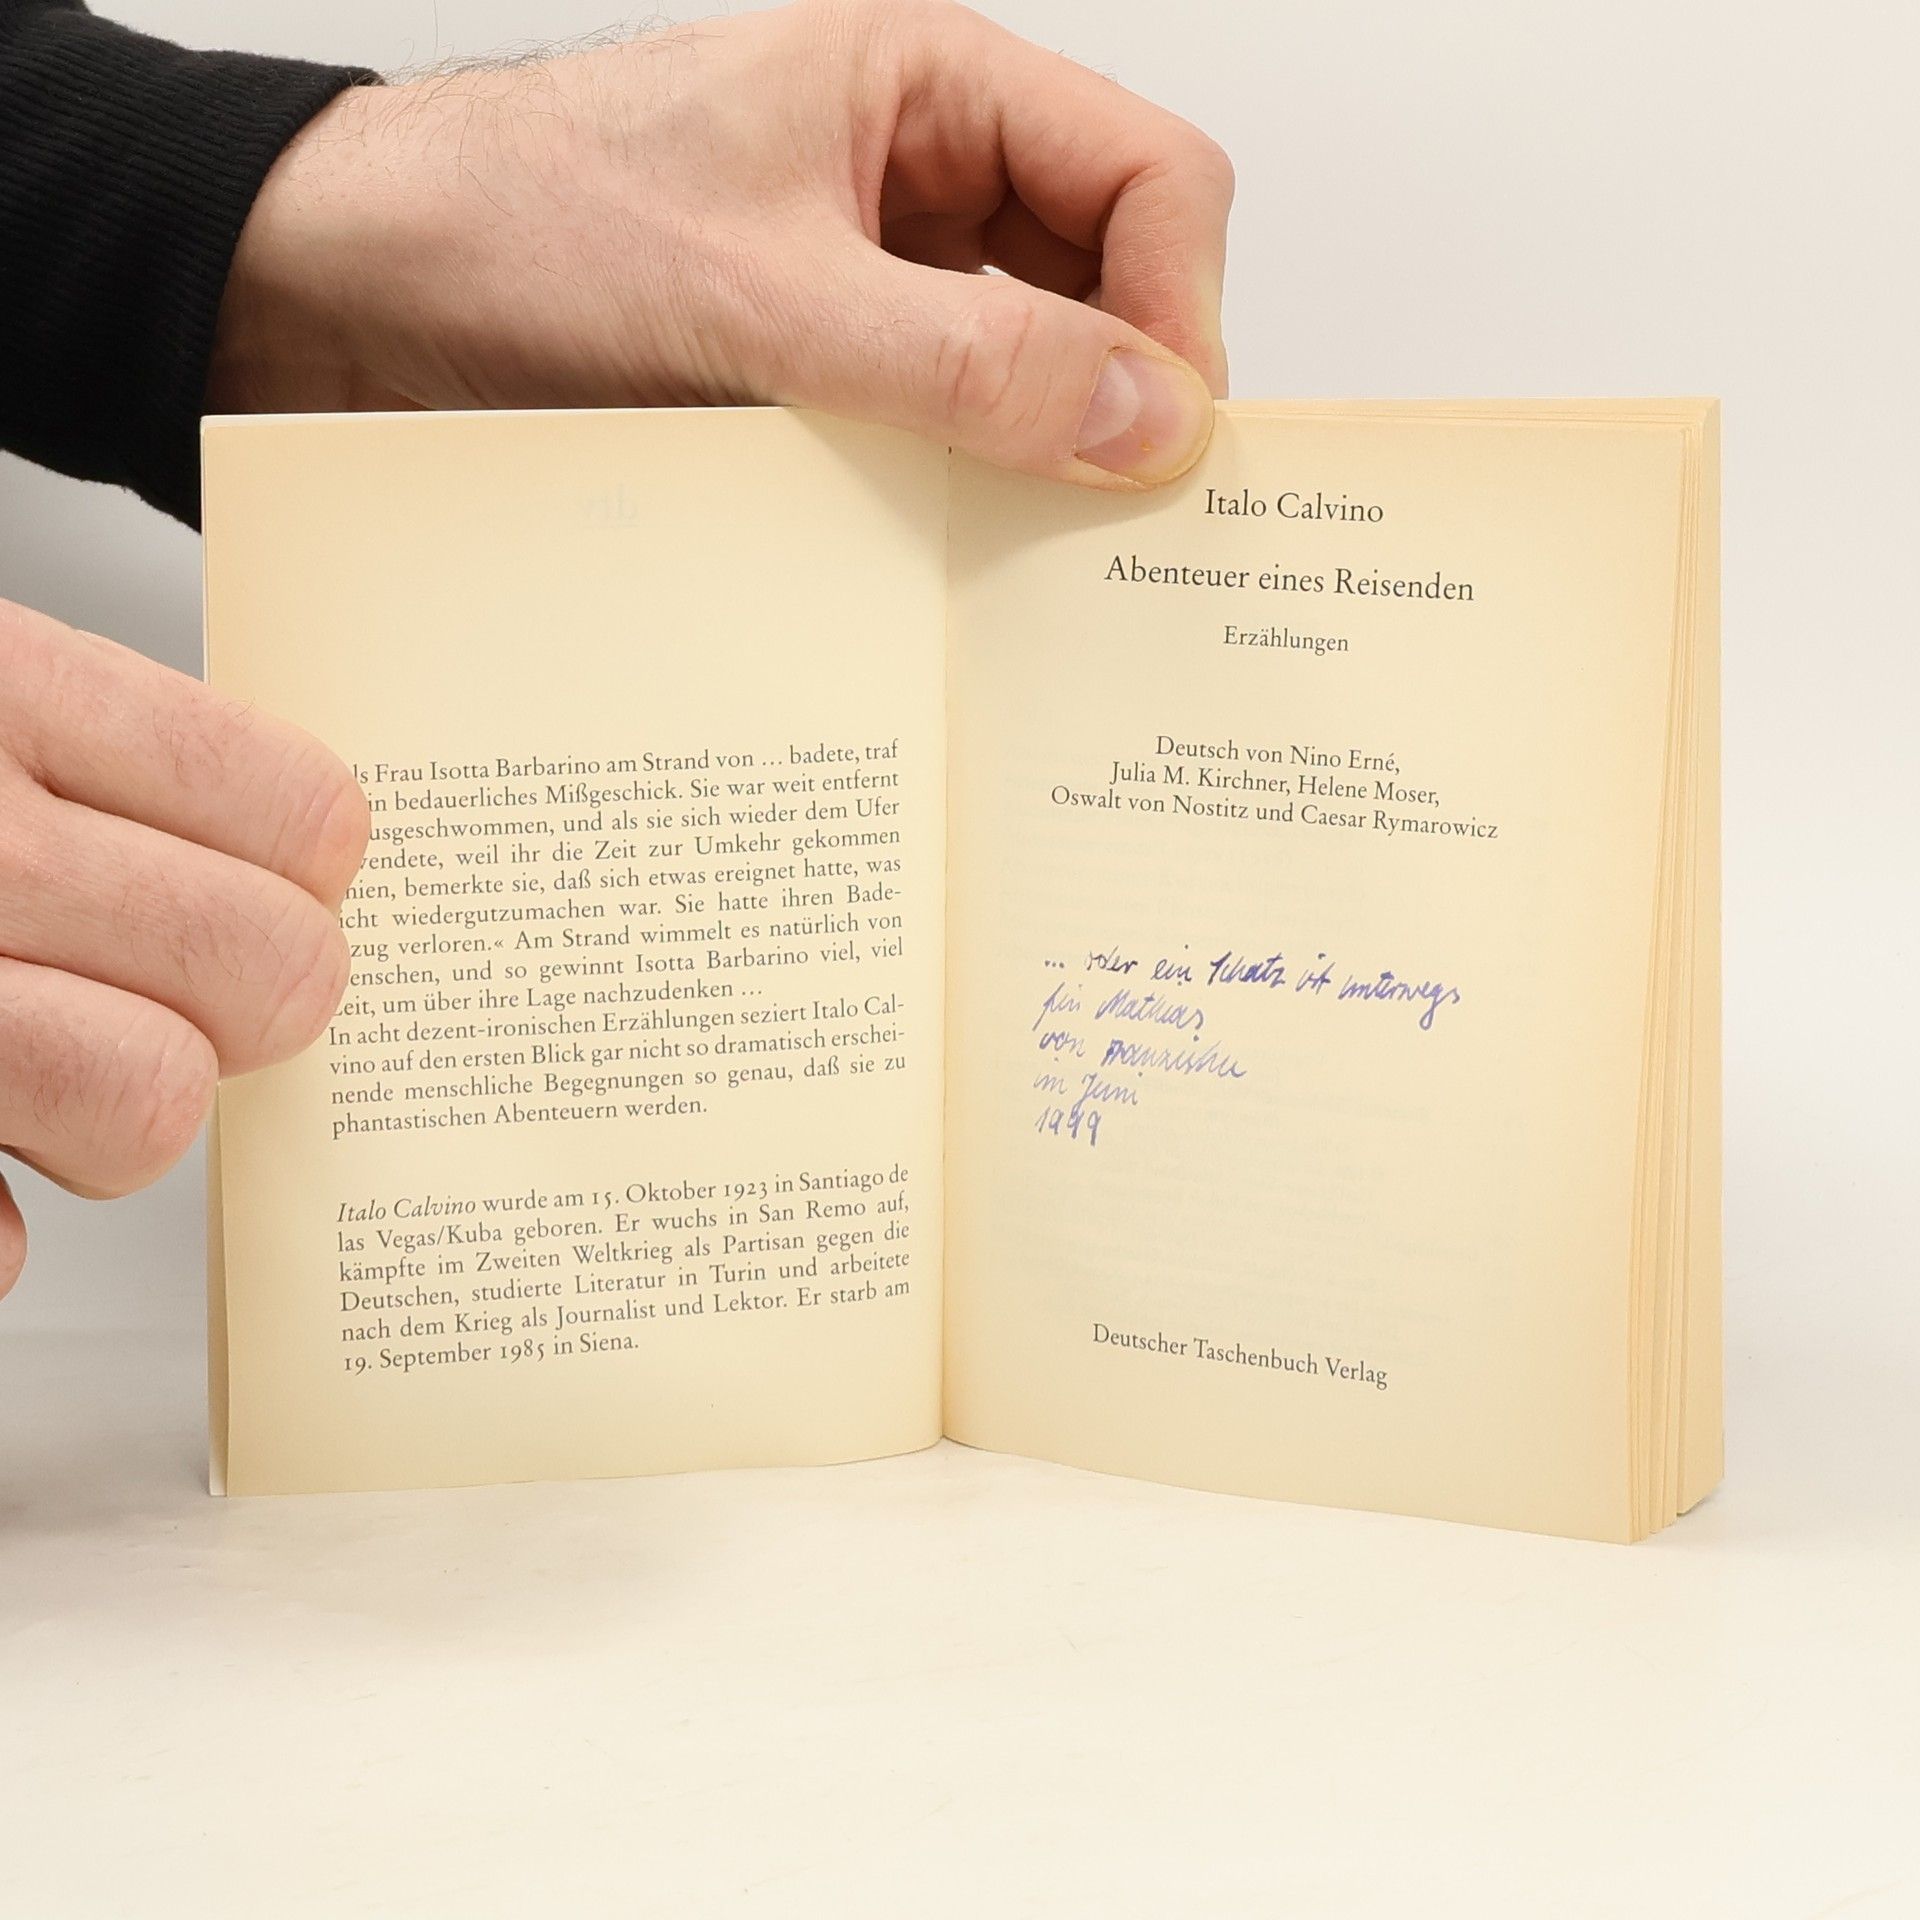 ls Frau Isotta Barbarino am Strand von … badete, traf
in bedauerliches Mißgeschick. Sie war weit entfernt
usgeschwommen, und als sie sich wieder dem Ufer
wendete, weil ihr die Zeit zur Umkehr gekommen
hien, bemerkte sie, daß sich etwas ereignet hatte, was
icht wiedergutzumachen war. Sie hatte ihren Bade-
zug verloren.« Am Strand wimmelt es natürlich von
enschen, und so gewinnt Isotta Barbarino viel, viel
Zeit, um über ihre Lage nachzudenken …
In acht dezent-ironischen Erzählungen seziert Italo Cal-
vino auf den ersten Blick gar nicht so dramatisch erschei-
nende menschliche Begegnungen so genau, daß sie zu
phantastischen Abenteuern werden.
Italo Calvino wurde am 15. Oktober 1923 in Santiago de
las Vegas/Kuba geboren. Er wuchs in San Remo auf,
kämpfte im Zweiten Weltkrieg als Partisan gegen die
Deutschen, studierte Literatur in Turin und arbeitete
nach dem Krieg als Journalist und Lektor. Er starb am
19. September 1985 in Siena.
Italo Calvino
Abenteuer eines Reisenden
Erzählungen
Deutsch von Nino Erné,
Julia M. Kirchner, Helene Moser,
Oswalt von Nostitz und Caesar Rymarowicz
... oder ein Schatz ist unterwegs
für Mathias
von Franziska
im Juni
1999
Deutscher Taschenbuch Verlag